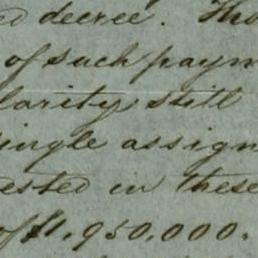 ed decree. Tho
of such paym
larity still
ingle assign
ested in these
of $1,950,000.